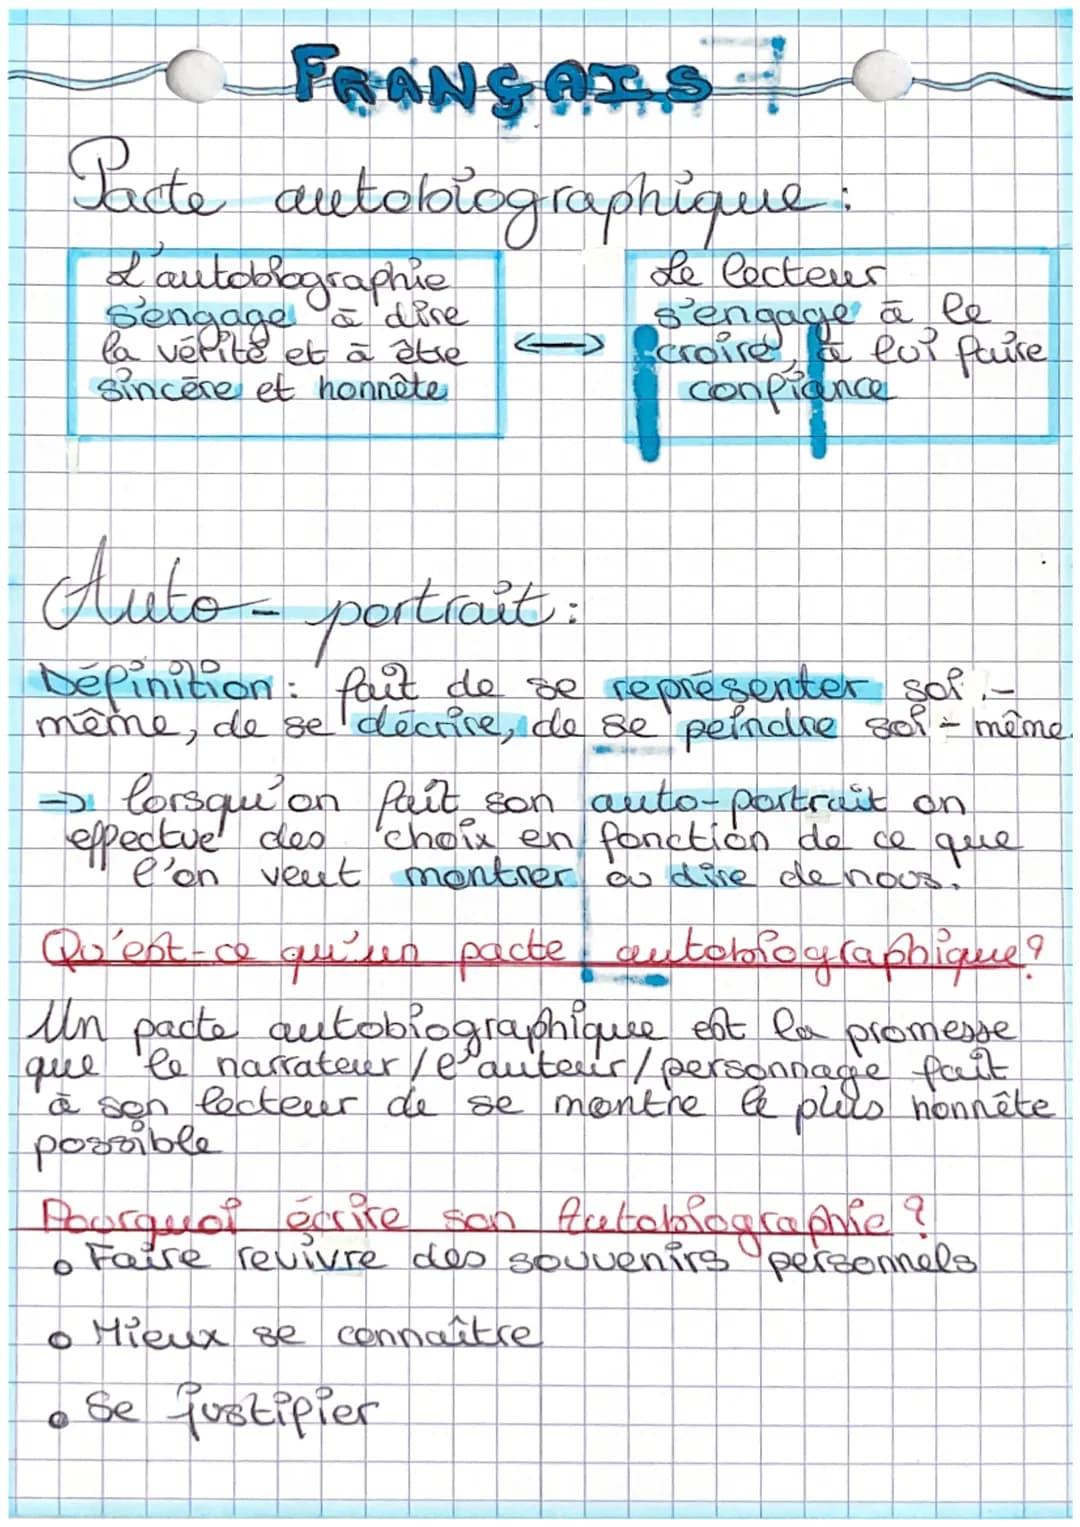 FRANÇAIS
Pacte autobiographique :
L'autobiographie
s'engage à dire
la vérité et à être
sincère et honnête
<->
Le lecteur
s'engage à le
croire, à lui faire
confiance
Auto-portrait :
Définition : fait de se représenter soi-
même, de se décrire, de se peindre soi-même.
-> lorsqu'on fait son auto-portrait on
effectue des choix en fonction de ce que
l'on veut montrer ou dire de nous.
Qu'est-ce qu'un pacte autobiographique ?
Un pacte autobiographique est la promesse
que le narrateur/l'auteur/personnage fait
à son lecteur de se montre le plus honnête
possible
Pourquoi écrire son Autobiographie ?
o Faire revivre des souvenirs personnels
o Mieux se connaître
o Se justifier